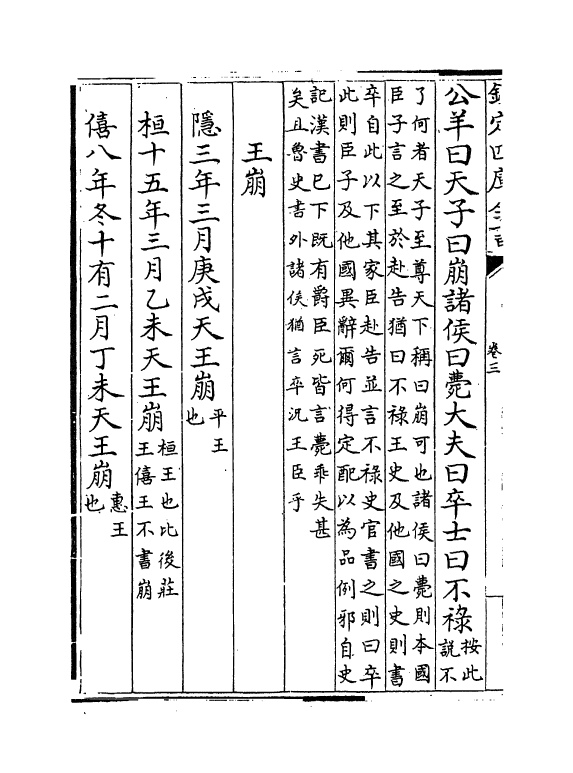 欽定四庫全書
卷三
公羊曰天子曰崩諸侯曰薨大夫曰卒士曰不祿按此說不
了何者天子至尊天下稱曰崩可也諸侯曰薨則本國
臣子言之至於赴告猶曰不祿王史及他國之史則書
卒自此以下其家臣赴告並言不祿史官書之則曰卒
此則臣子及他國異辭爾何得定配以為品例邪自史
記漢書已下既有爵臣死皆言薨乖失甚
矣且魯史書外諸侯猶言卒況王臣乎
王崩
隱三年三月庚戌天王崩平王也
桓十五年三月乙未天王崩桓王也比後莊王僖王不書崩
僖八年冬十有二月丁未天王崩惠王也